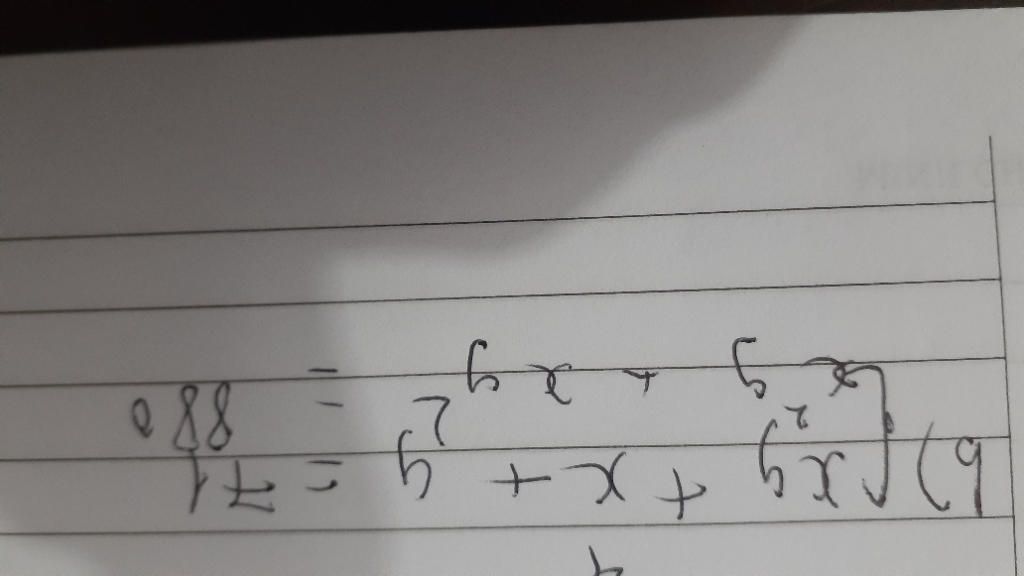 b) { xy + x + y = 71
x²y + xy² = 880